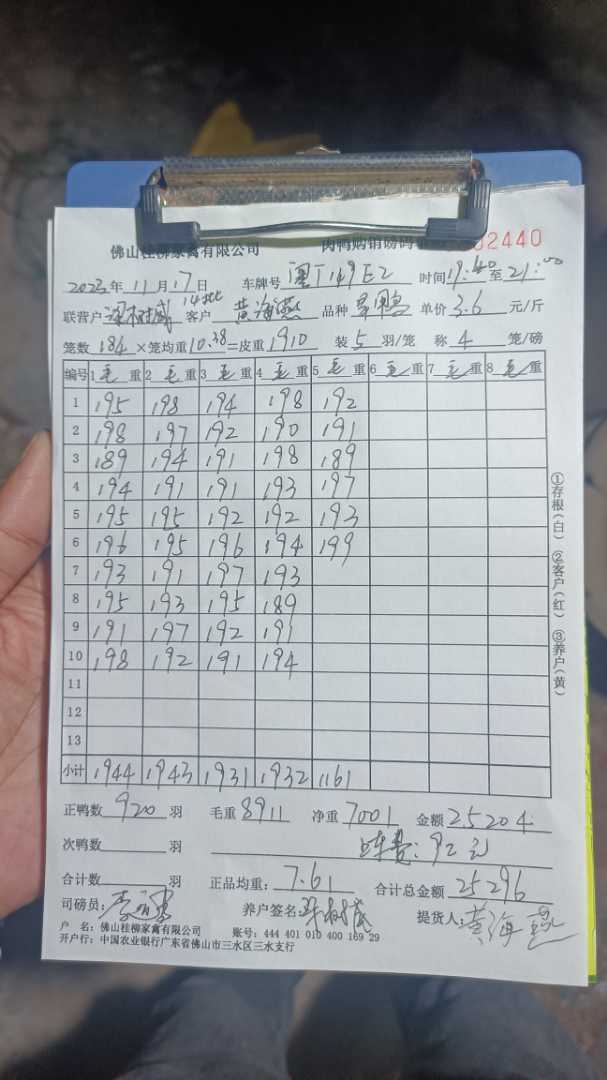 佛山桂柳家禽有限公司 肉鸭购销磅码单 2440
2023年 11月 17日 车牌号 粤T149E2 时间 19:40 至 21:00
联营户 梁树威 14批 客户 黄海燕 品种 单价 3.6 元/斤
笼数 184 ×笼均重 10.38 =皮重 1910 装 5 羽/笼 称 4 笼/磅
编号 1 毛 重 2 毛 重 3 毛 重 4 毛 重 5 毛 重 6 毛 重 7 毛 重 8 毛 重
1 195 198 194 198 192
2 198 197 192 190 191
3 189 194 191 198 189
4 194 191 191 193 197
5 195 195 192 192 193
6 196 195 196 194 199
7 193 191 197 193
8 195 193 195 189
9 191 197 192 191
10 198 192 191 194
11
12
13
小计 1944 1943 1931 1932 1161
①存根(白) ②客户(红) ③养户(黄)
正鸭数 920 羽 毛重 8911 净重 7001 金额 25204.
次鸭数 羽 92元
合计数 羽 正品均重: 7.61 合计总金额 25296
司磅员: 养户签名: 梁树威 提货人: 黄海燕
户 名: 佛山桂柳家禽有限公司 账号: 444 401 010 400 169 29
开户行: 中国农业银行广东省佛山市三水区三水支行